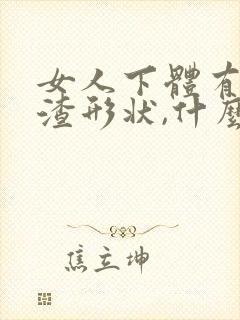 女人下體有
渣形狀,什麼
焦立坤